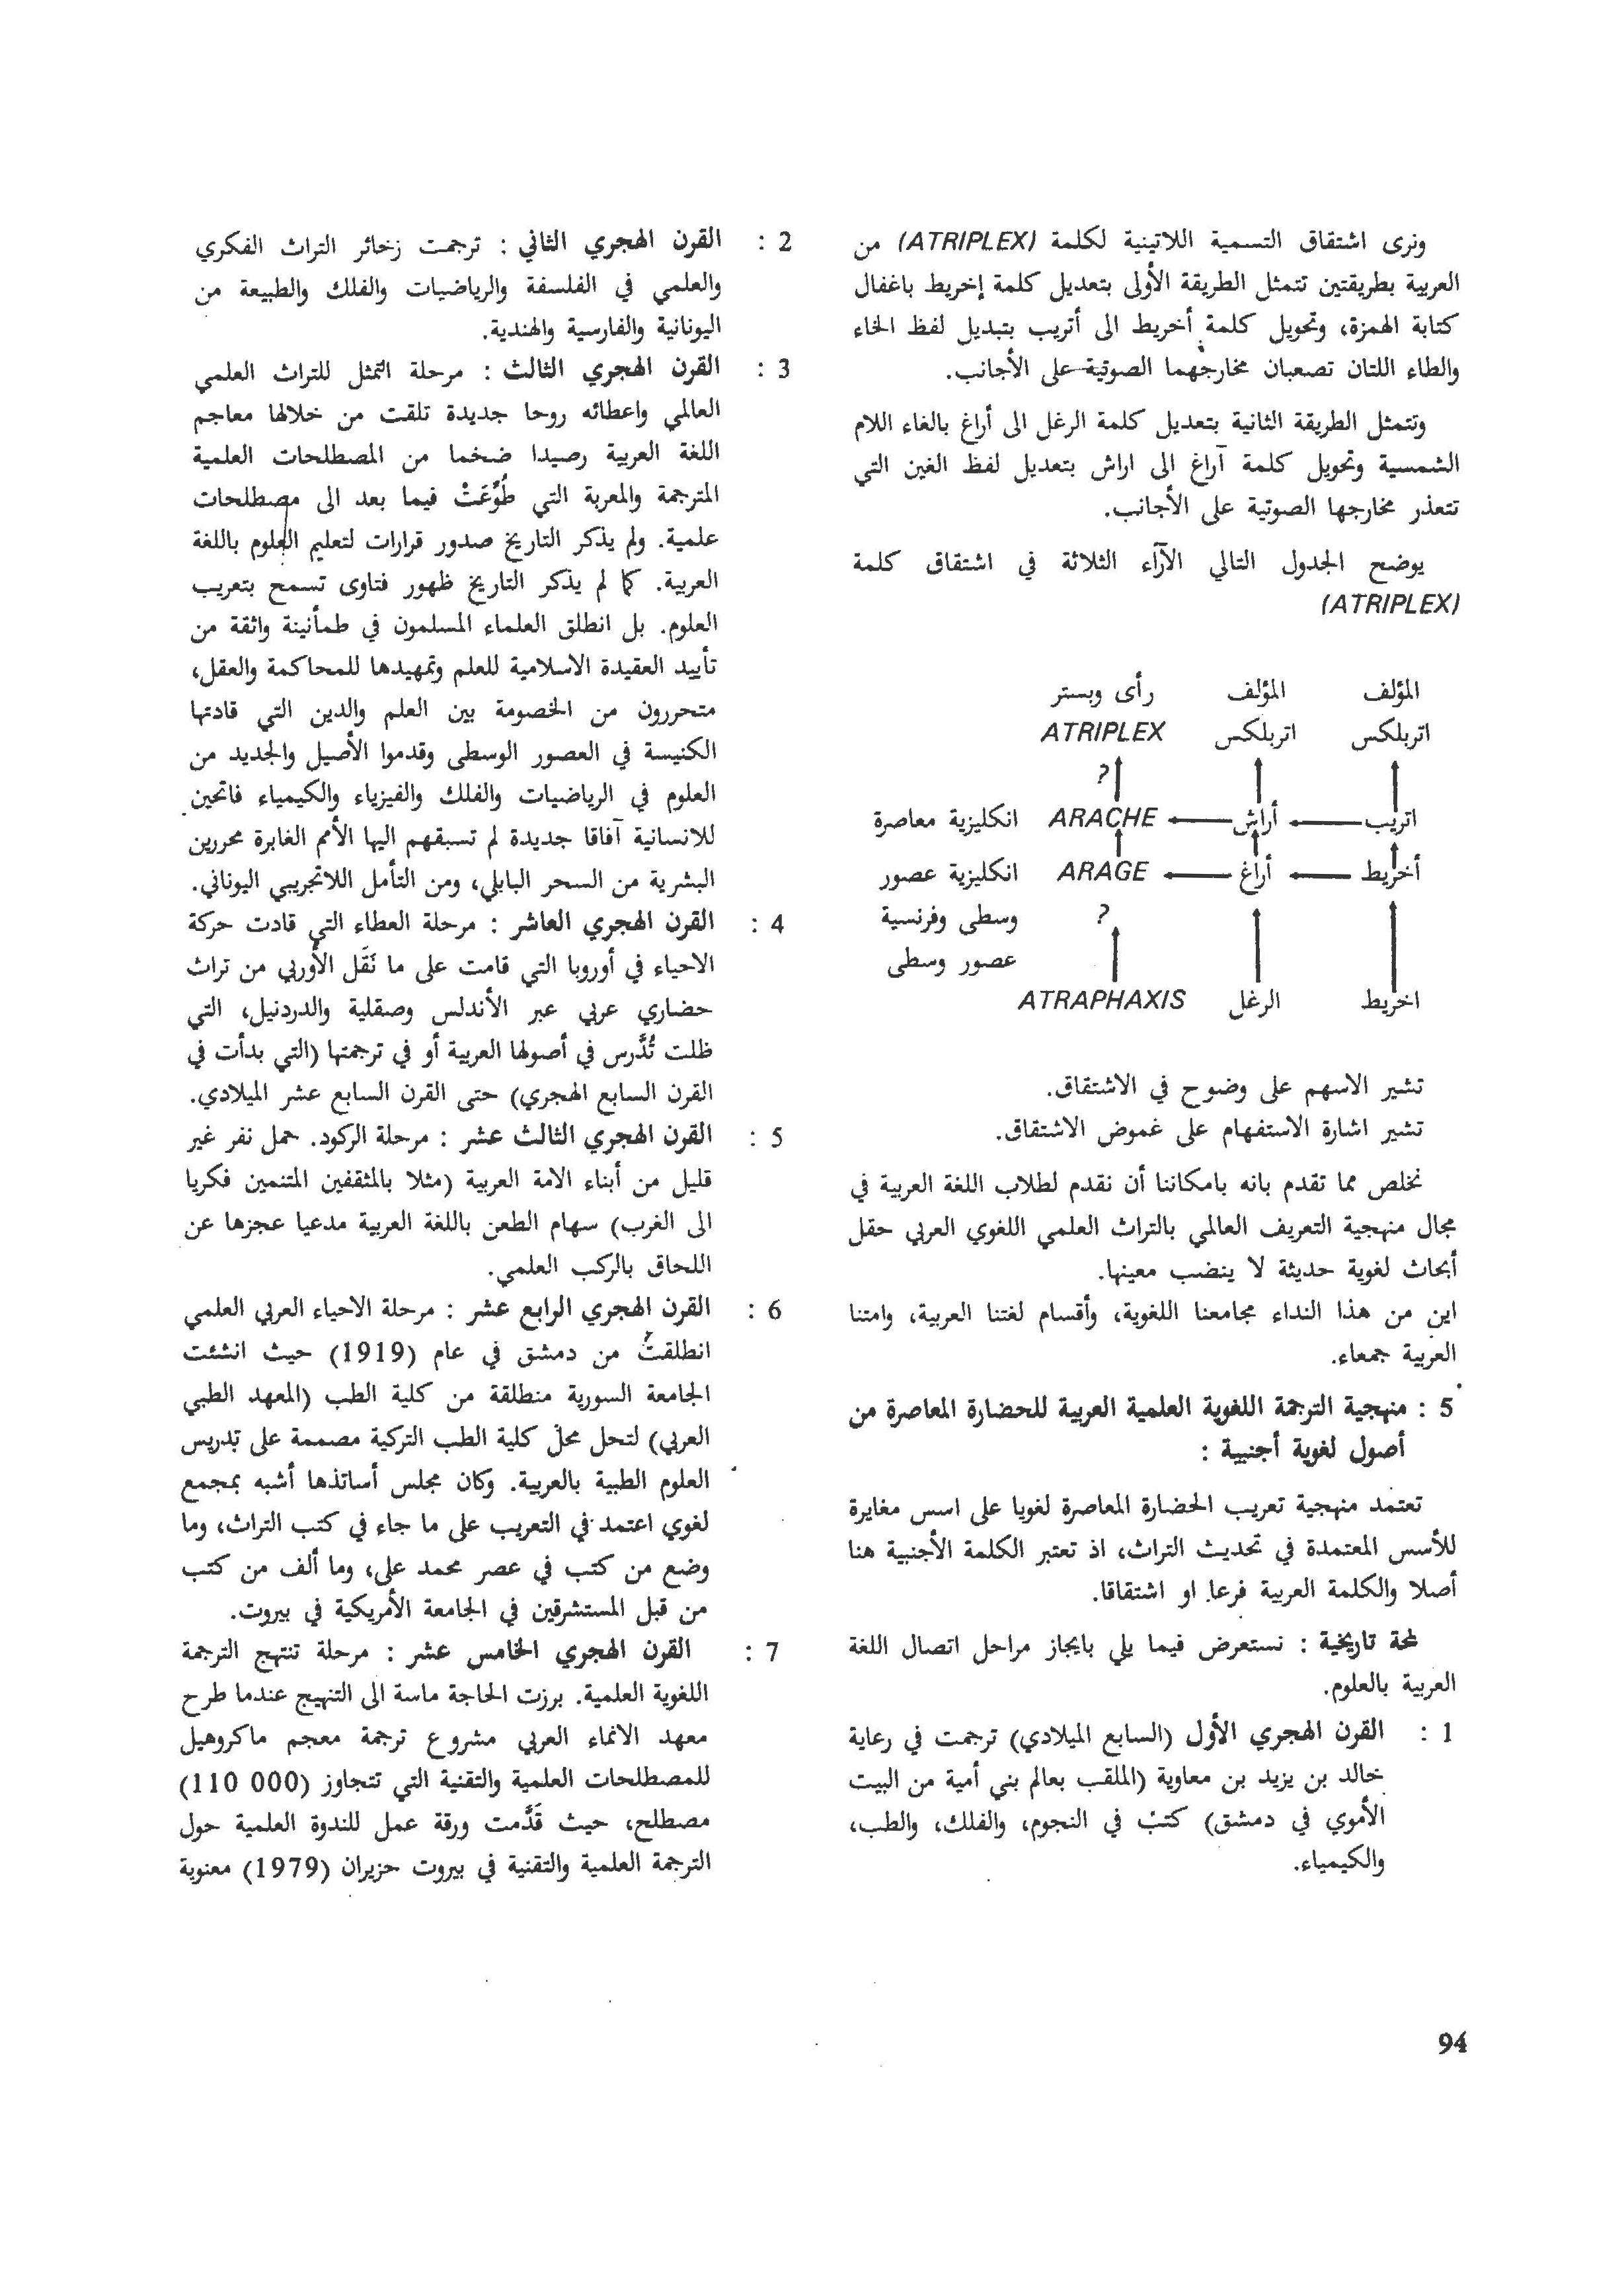 ونرى اشتقاق التسمية اللاتينية لكلمة (ATRIPLEX) من
العربية بطريقتين تتمثل الطريقة الأولى بتعديل كلمة إخريط باغفال
كتابة الهمزة، وتحويل كلمة أخريط الى أتريب بتبديل لفظ الخاء
والطاء اللتان تصعبان مخارجهما الصوتية على الأجانب.
وتتمثل الطريقة الثانية بتعديل كلمة الرغل الى أراغ بالغاء اللام
الشمسية وتحويل كلمة آراغ الى اراش بتعديل لفظ الغين التي
تتعذر مخارجها الصوتية على الأجانب.
يوضح الجدول التالي الآراء الثلاثة في اشتقاق كلمة
(ATRIPLEX)
المؤلف المؤلف رأى وبستر
اتربلكس اتربلكس ATRIPLEX
?
اتريب أراش ARACHE انكليزية معاصرة
أخريط أراغ ARAGE انكليزية عصور
? وسطى وفرنسية
عصور وسطى
اخريط الرغل ATRAPHAXIS
تشير الاسهم على وضوح في الاشتقاق.
تشير اشارة الاستفهام على غموض الاشتقاق.
نخلص مما تقدم بانه بامكاننا أن نقدم لطلاب اللغة العربية في
مجال منهجية التعريف العالمي بالتراث العلمي اللغوي العربي حقل
أبحاث لغوية حديثة لا ينضب معينها.
اين من هذا النداء مجامعنا اللغوية، وأقسام لغتنا العربية، وامتنا
العربية جمعاء.
5 : منهجية الترجمة اللغوية العلمية العربية للحضارة المعاصرة من
أصول لغوية أجنبية :
تعتمد منهجية تعريب الحضارة المعاصرة لغويا على اسس مغايرة
للأسس المعتمدة في تحديث التراث، اذ تعتبر الكلمة الأجنبية هنا
أصلا والكلمة العربية فرعا او اشتقاقا.
لمحة تاريخية : نستعرض فيما يلي بايجاز مراحل اتصال اللغة
العربية بالعلوم.
1 : القرن الهجري الأول (السابع الميلادي) ترجمت في رعاية
خالد بن يزيد بن معاوية (الملقب بعالم بني أمية من البيت
الأموي في دمشق) كتب في النجوم، والفلك، والطب،
والكيمياء.
2 : القرن الهجري الثاني : ترجمت زخائر التراث الفكري
والعلمي في الفلسفة والرياضيات والفلك والطبيعة من
اليونانية والفارسية والهندية.
3 : القرن الهجري الثالث : مرحلة التمثل للتراث العلمي
العالمي واعطائه روحا جديدة تلقت من خلالها معاجم
اللغة العربية رصيدا ضخما من المصطلحات العلمية
المترجمة والمعربة التي طُوِّعَتْ فيما بعد الى مصطلحات
علمية. ولم يذكر التاريخ صدور قرارات لتعليم العلوم باللغة
العربية. كما لم يذكر التاريخ ظهور فتاوى تسمح بتعريب
العلوم. بل انطلق العلماء المسلمون في طمأنينة واثقة من
تأييد العقيدة الاسلامية للعلم وتمهيدها للمحاكمة والعقل،
متحررون من الخصومة بين العلم والدين التي قادتها
الكنيسة في العصور الوسطى وقدموا الأصيل والجديد من
العلوم في الرياضيات والفلك والفيزياء والكيمياء فاتحين
للانسانية آفاقا جديدة لم تسبقهم اليها الأمم الغابرة محررين
البشرية من السحر البابلي، ومن التأمل اللاتجريبي اليوناني.
4 : القرن الهجري العاشر : مرحلة العطاء التي قادت حركة
الاحياء في أوروبا التي قامت على ما نَقَل الأوربي من تراث
حضاري عربي عبر الأندلس وصقلية والدردنيل، التي
ظلت تُدَّرس في أصولها العربية أو في ترجمتها (التي بدأت في
القرن السابع الهجري) حتى القرن السابع عشر الميلادي.
5 : القرن الهجري الثالث عشر : مرحلة الركود. حمل نفر غير
قليل من أبناء الامة العربية (مثلا بالمثقفين المتنمين فكريا
الى الغرب) سهام الطعن باللغة العربية مدعيا عجزها عن
اللحاق بالركب العلمي.
6 : القرن الهجري الرابع عشر : مرحلة الاحياء العربي العلمي
انطلقت من دمشق في عام (1919) حيث انشئت
الجامعة السورية منطلقة من كلية الطب (المعهد الطبي
العربي) لتحل محلّ كلية الطب التركية مصممة على تدريس
العلوم الطبية بالعربية. وكان مجلس أساتذها أشبه بمجمع
لغوي اعتمد في التعريب على ما جاء في كتب التراث، وما
وضع من كتب في عصر محمد على، وما ألف من كتب
من قبل المستشرقين في الجامعة الأمريكية في بيروت.
7 : القرن الهجري الخامس عشر : مرحلة تنتهج الترجمة
اللغوية العلمية. برزت الحاجة ماسة الى التنهيج عندما طرح
معهد الانماء العربي مشروع ترجمة معجم ماكروهيل
للمصطلحات العلمية والتقنية التي تتجاوز (000 110)
مصطلح، حيث قَدَّمت ورقة عمل للندوة العلمية حول
الترجمة العلمية والتقنية في بيروت حزيران (1979) معنوية
94